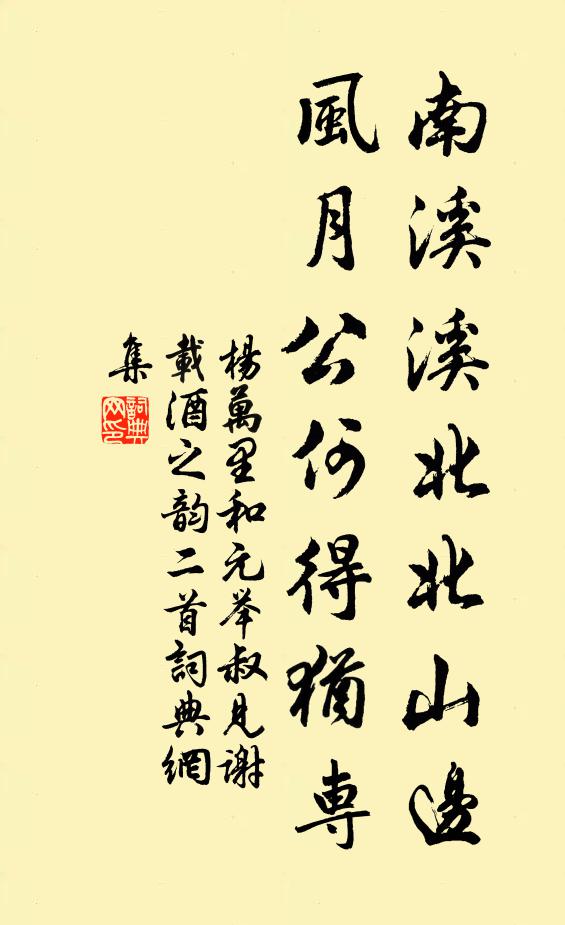 南溪溪北北山邊
風月公何得猶專
楊萬里和元举叔見謝
載酒之韵二首詞典網
集
詞典网印